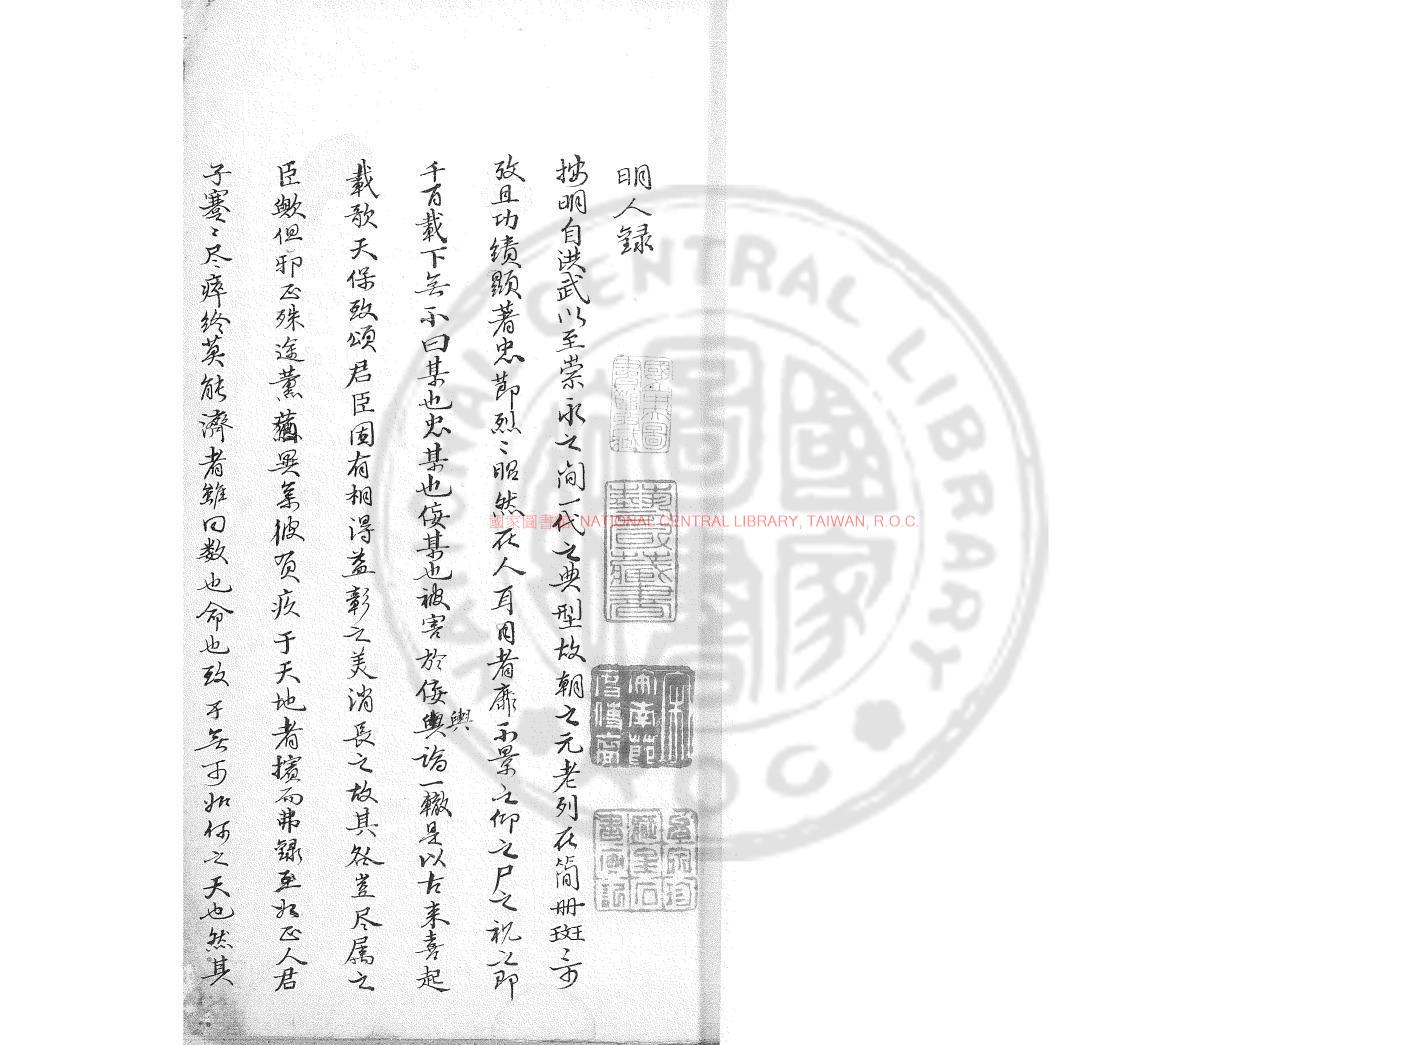 明人録
按明自洪武以至崇永之间一代之典型故朝之元老列在简册斑〻可
攷且功績顯著忠節烈〻昭然在人耳目者靡不景之仰之尸之祝之即
千百載下無不曰某也忠某也佞某也被害於佞輿論一轍是以古来喜起
輿
載歌天保致頌君臣固有相得益彰之美消長之故其咎豈尽属之
臣欤但邪正殊途薫蕕異氣彼負疚于天地者擯而弗録至如正人君
子蹇〻尽瘁終莫能濟者雖曰数也命也致于無可如何之天也然其
國家圖書館 NATIONAL CENTRAL LIBRARY, TAIWAN, R.O.C.
NATIONAL CENTRAL LIBRARY
ROC
國家圖書